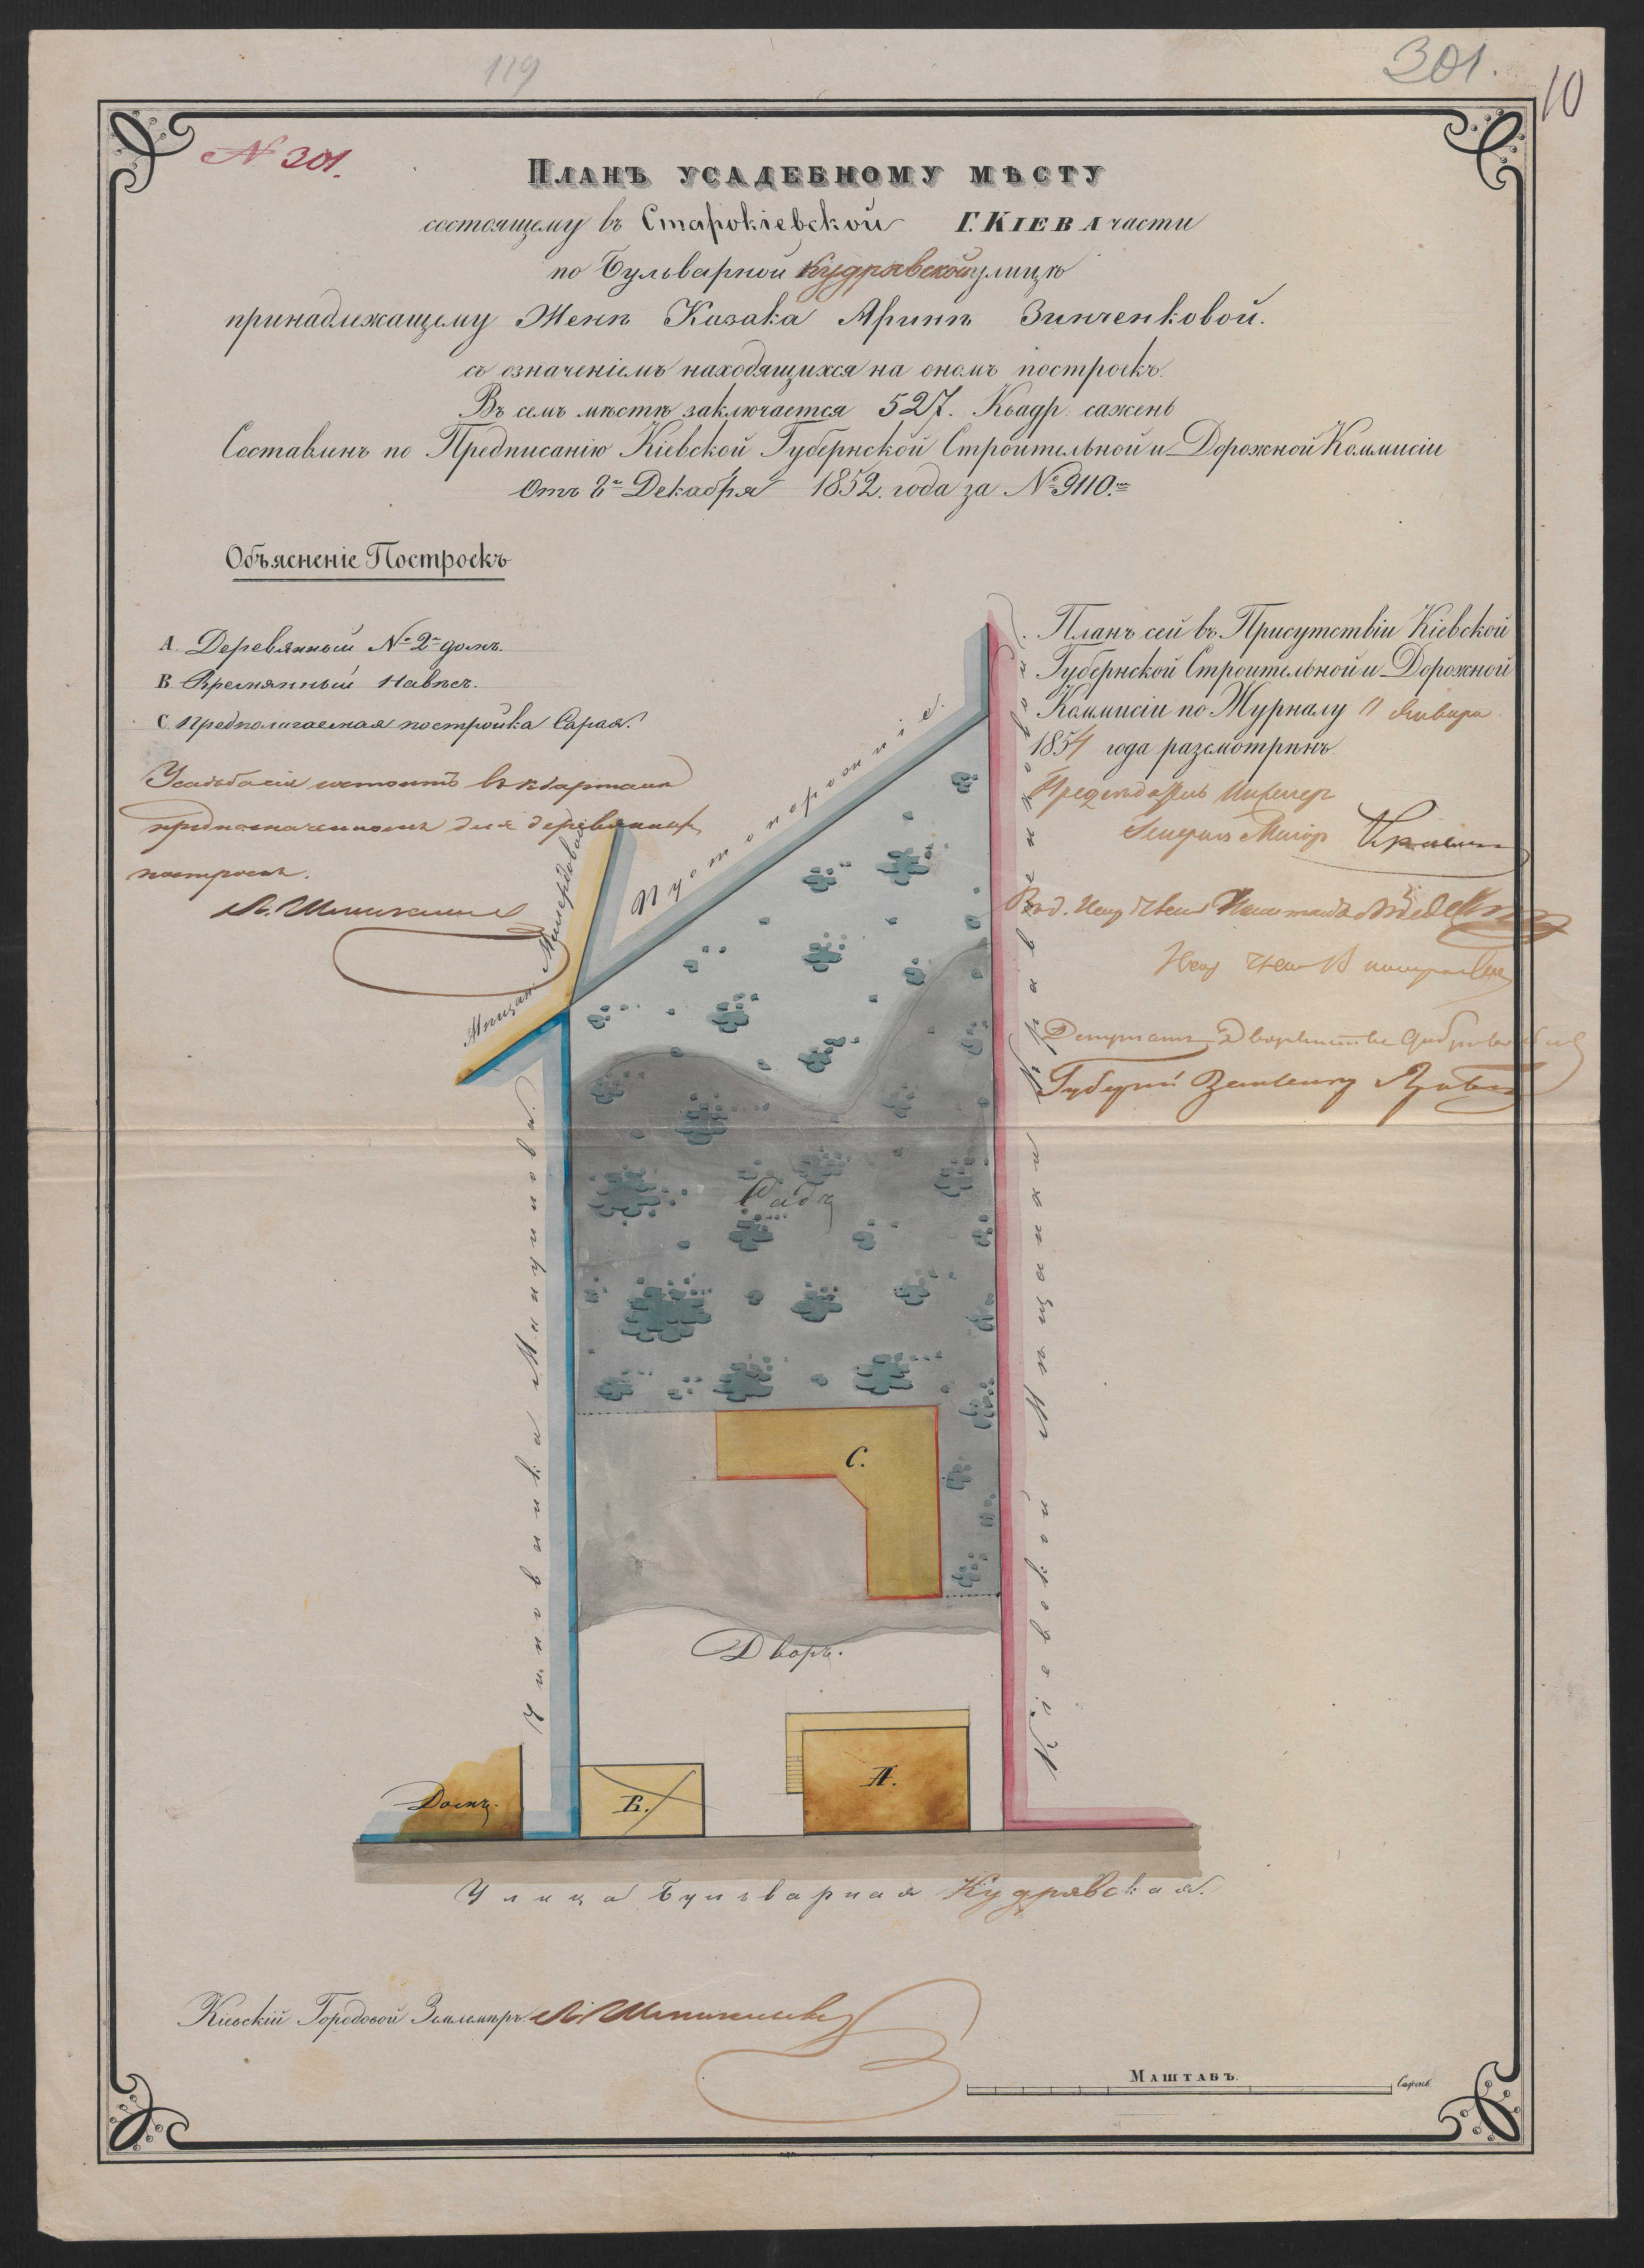 119
301.
10
№ 301.
Планъ усадебному мѣсту
состоящему въ Старокіевской Г. Кіева части
по Бульварной Кудрявской улицѣ
принадлежащему Женѣ Казака Аринѣ Зинченковой.
съ означеніемъ находящихся на ономъ построекъ.
Въ семъ мѣстѣ заключается 527. Квадр: сажень
Составленъ по Предписанію Кіевской Губернской Строительной и Дорожной Коммисіи
Отъ 8го Декабря 1852. года за № 9110.мъ
Объясненіе Построекъ
А. Деревянный № 2й домъ.
В. Времянный Навѣсъ.
С. Предполагаемая постройка Сарая.
Усадьба сія состоитъ въ кварталѣ
предназначенномъ для деревянныхъ
построекъ.
Планъ сей въ Присутствіи Кіевской
Губернской Строительной и Дорожной
Коммисіи по Журналу 11 Января
1854 года разсмотрѣнъ.
Предсѣдатель Инженеръ
Генералъ Маіоръ
Депутатъ Дворянства
Губерн.
Мѣщан.
Пустопорожніе.
Чиновника Мануилова.
Садъ
С.
Дворъ.
Домъ.
В.
А.
Улица Бульварная Кудрявская.
Кіевскій Городовой Землемѣръ
Маштабъ.
Сажень